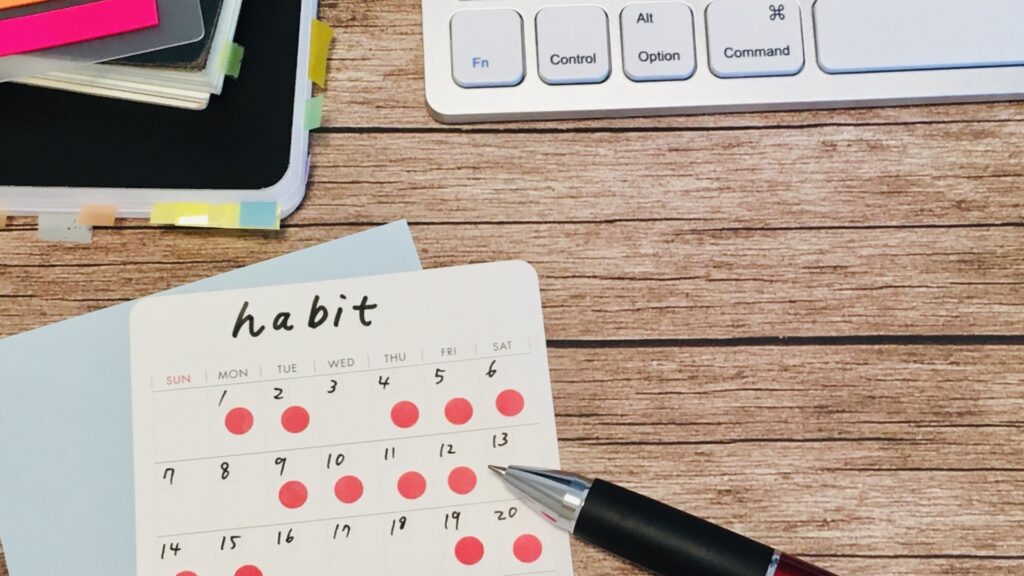 Alt ⌘
Fn Control Option Command
habit
SUN MON TUE WED THU FRI SAT
1 2 3 4 5 6
7 8 9 10 11 12 13
14 15 16 17 18 19 20